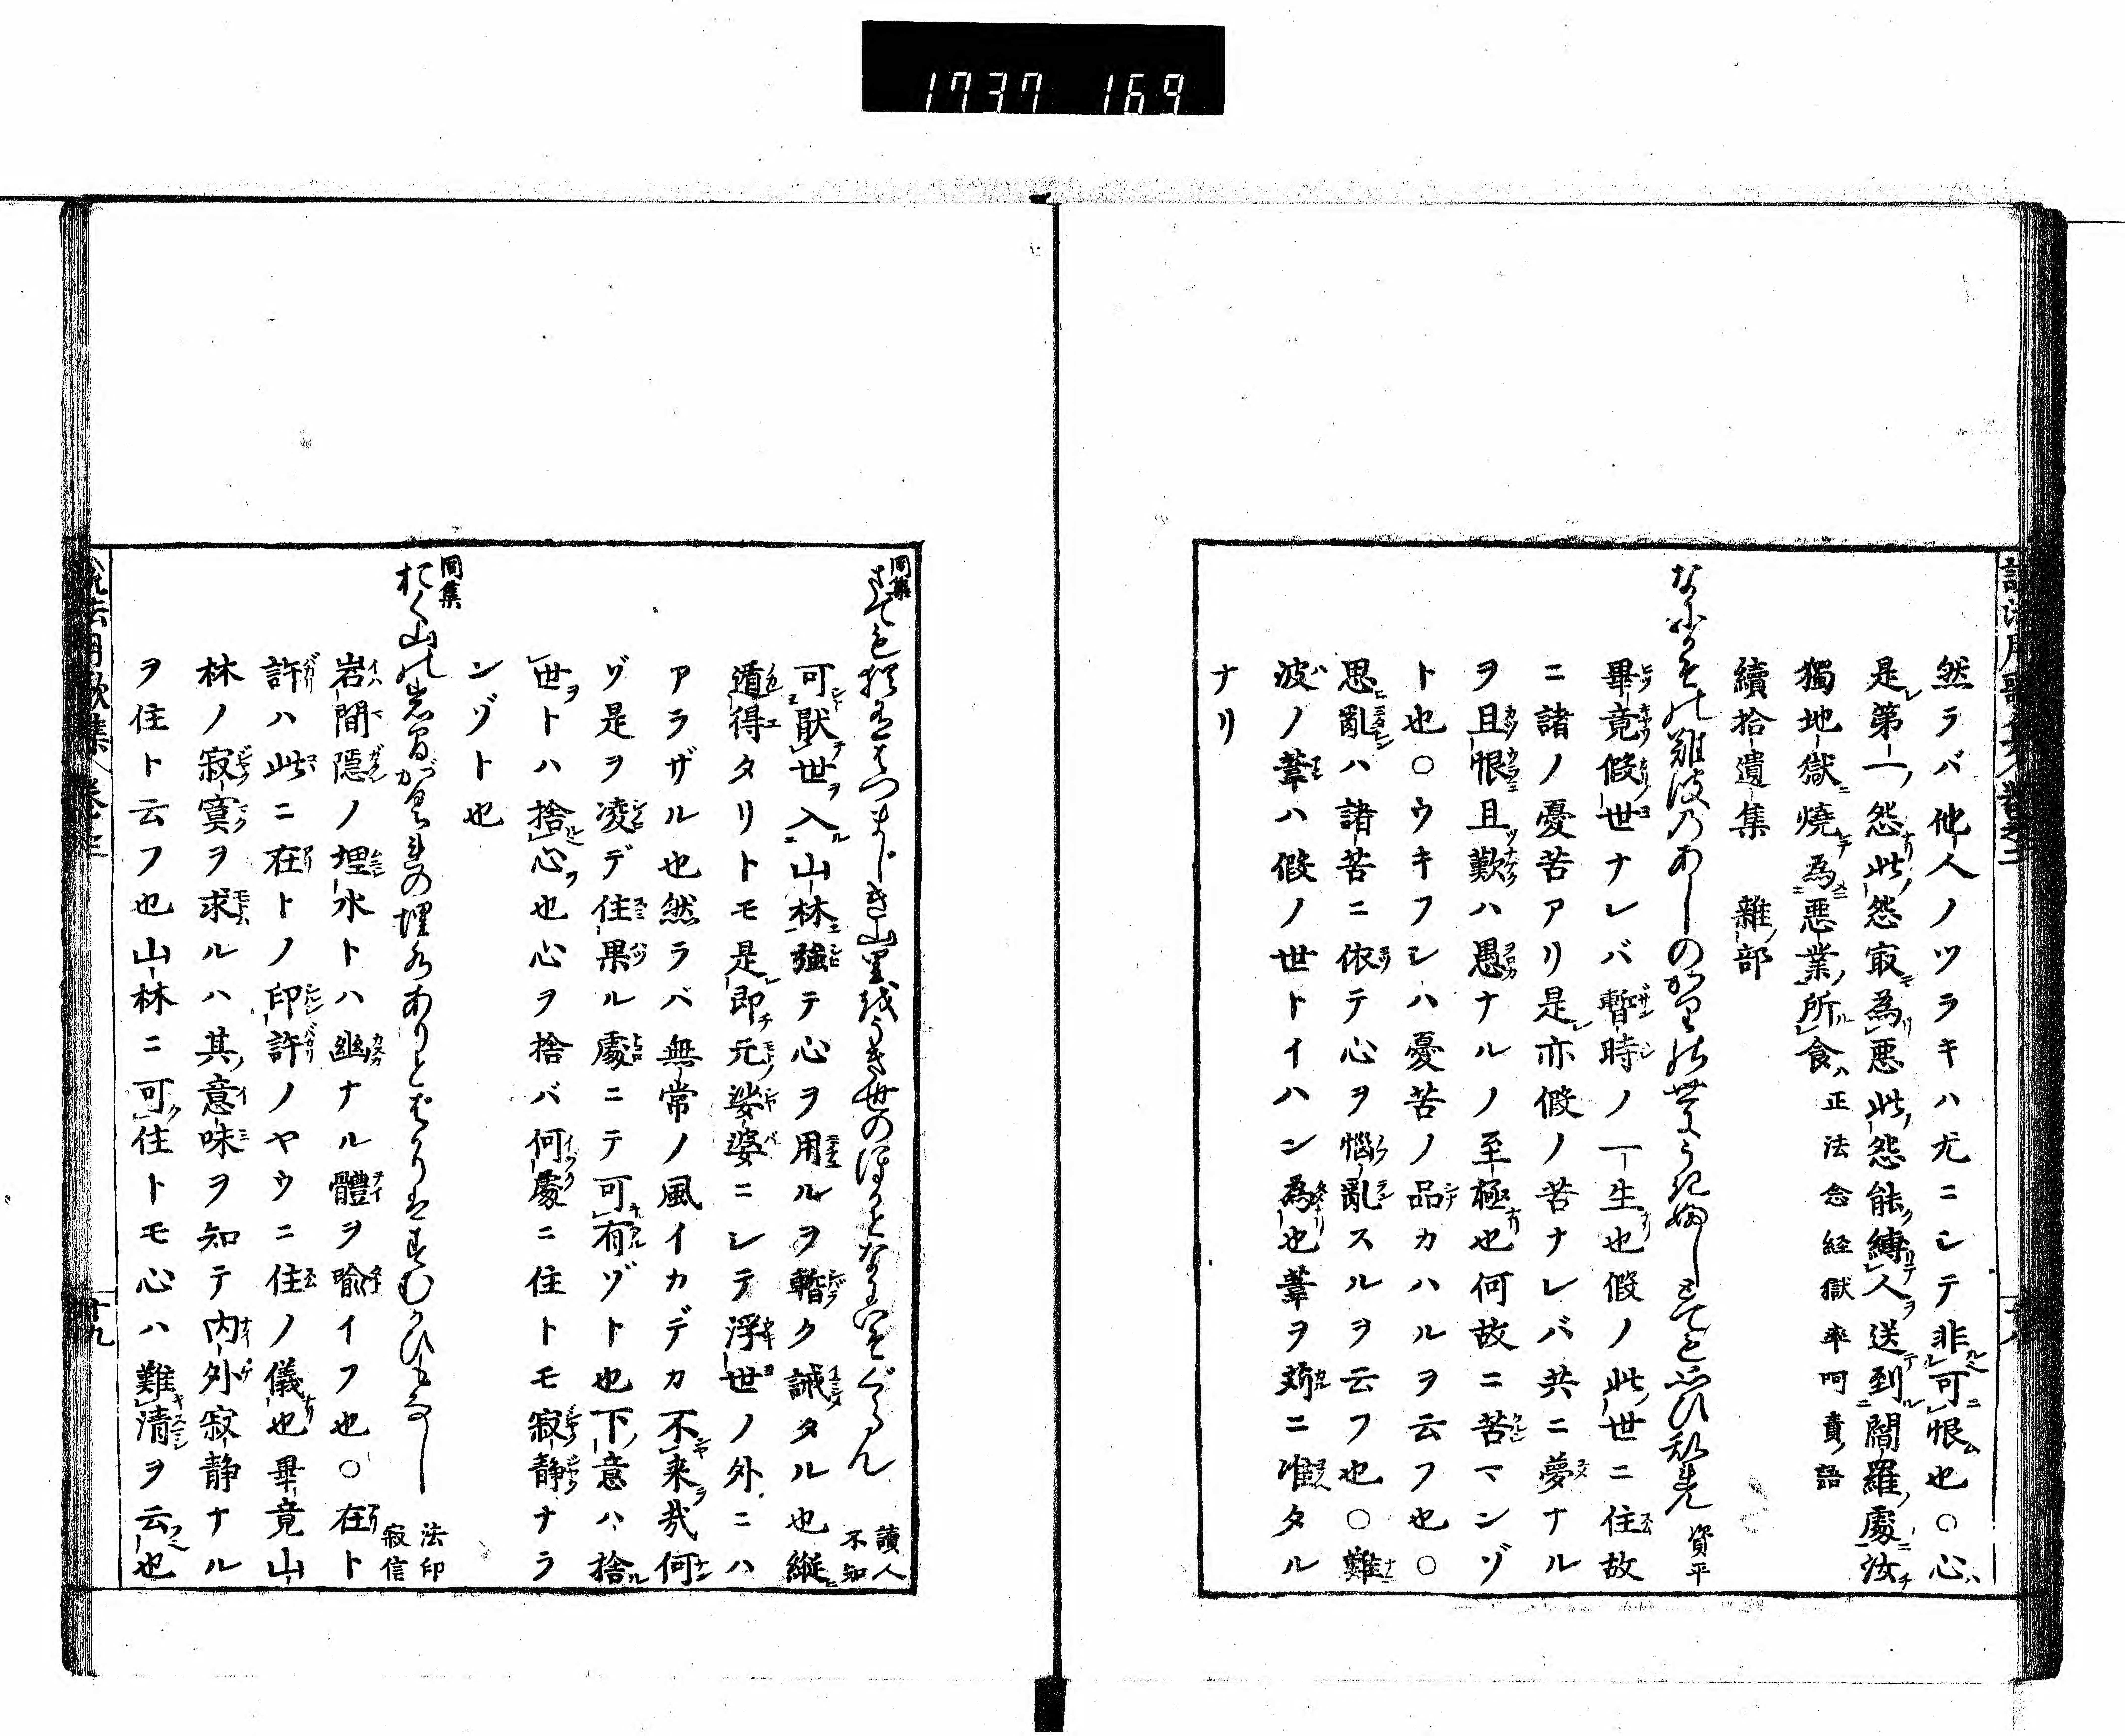 1737 169
然ラバ他人ノツラキハ尤ニシテ非可恨也○心
是第一怨此怨最為悪此怨能縛人送到閻羅處汝
獨地獄焼為悪業所食 正法念経獄卒呵責語
續拾遺集 雜部
難波のあしのかりの世に 資平
畢竟假世ナレバ暫時ノ一生也假ノ此世ニ住故
ニ諸ノ憂苦アリ是亦假ノ苦ナレバ共ニ夢ナル
ヲ且恨且歎ハ愚ナルノ至極也何故ニ苦マンゾ
ト也○ウキフシハ憂苦ノ品カハルヲ云フ也○
思亂ハ諸苦ニ依テ心ヲ惱亂スルヲ云フ也○難
波ノ葦ハ假ノ世トイハン為也葦ヲ苅ニ准タル
ナリ
同集
山里はうき世のほかと 讀人不知
可厭世入山林強テ心ヲ用ルヲ暫ク誡タル也縱
遁得タリトモ是即元娑婆ニシテ浮世ノ外ニハ
アラザル也然ラバ無常ノ風イカデカ不来哉何
ゾ是ヲ凌デ住果ル處ニテ可有ゾト也下意ハ捨
世トハ捨心也心ヲ捨バ何處ニ住トモ寂静ナラ
ンゾト也
同集
おく山の岩まがくれの埋水ありとばかりはすむかひもなし 法印寂信
岩間隠ノ埋水トハ幽ナル體ヲ喩イフ也○在ト
許ハ此ニ在トノ印許ノヤウニ住ノ儀也畢竟山
林ノ寂寞ヲ求ルハ其意味ヲ知テ内外寂静ナル
ヲ住ト云フ也山林ニ可住トモ心ハ難清ヲ云也
十九